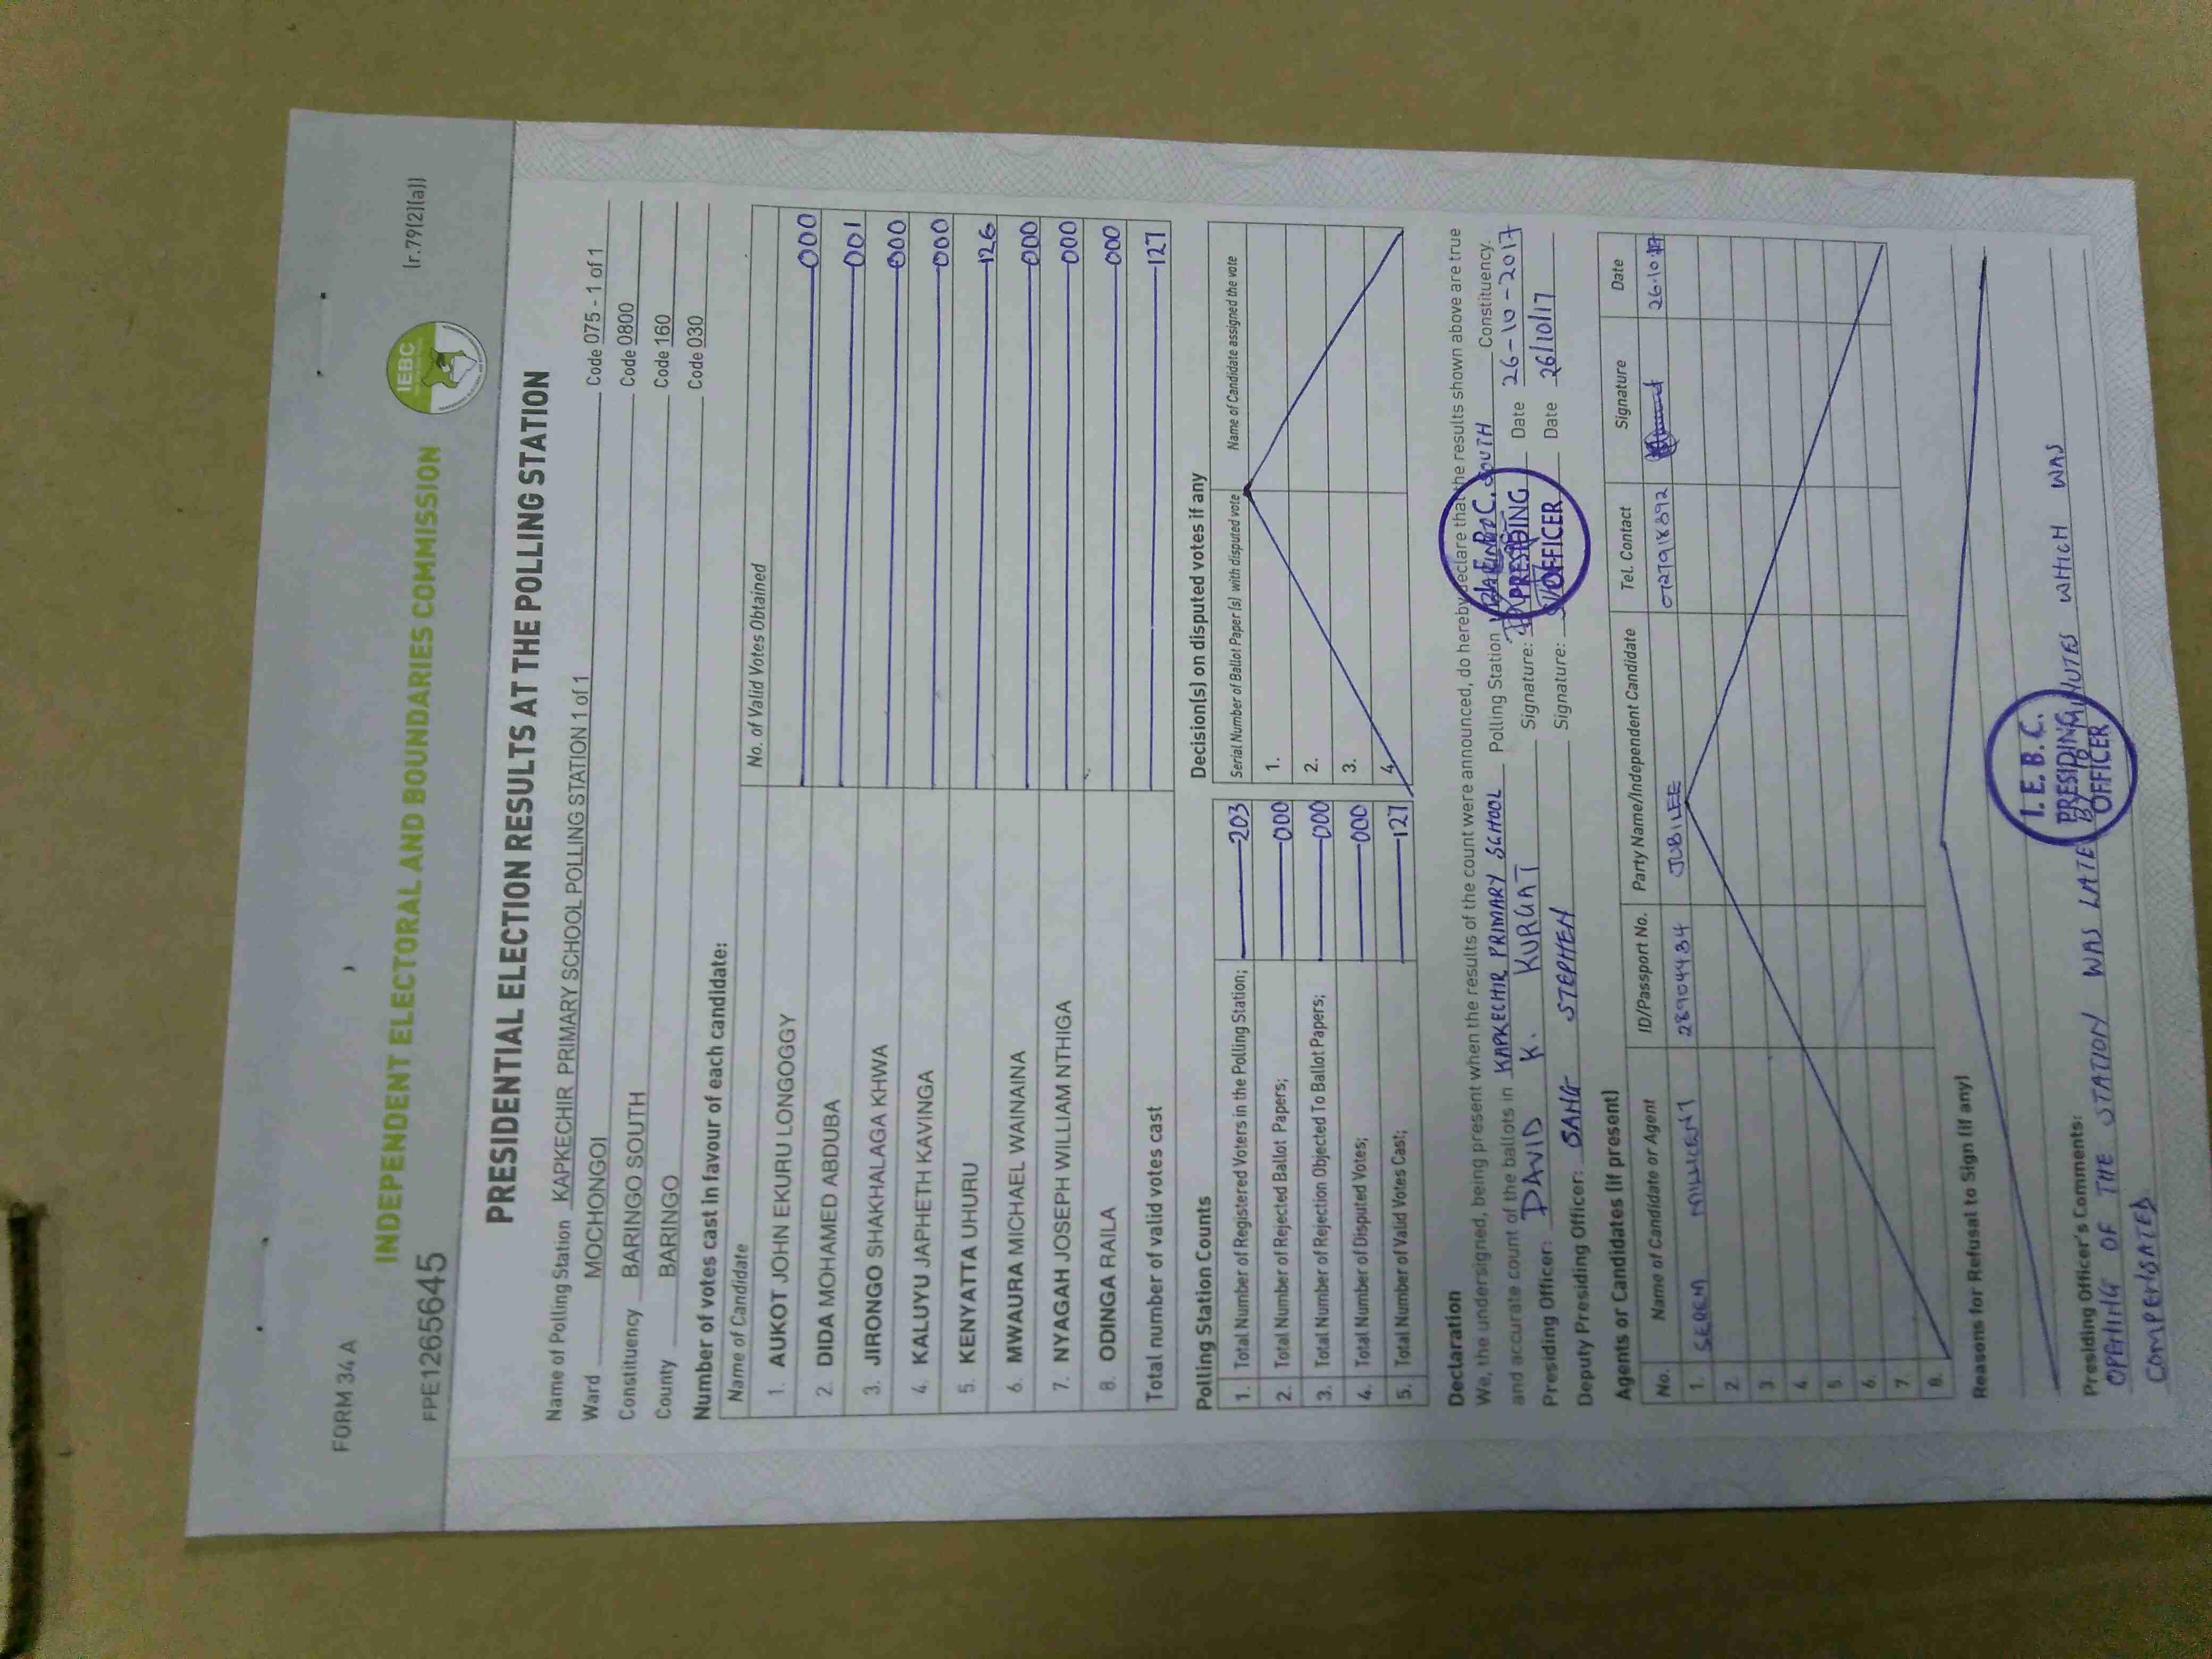 FORM 34A
(r.79(2)(a))
INDEPENDENT ELECTORAL AND BOUNDARIES COMMISSION
IEBC
FPE1265645
PRESIDENTIAL ELECTION RESULTS AT THE POLLING STATION
Name of Polling Station KAPKECHIR PRIMARY SCHOOL POLLING STATION 1 of 1 Code 075 - 1 of 1
Ward MOCHONGOI Code 0800
Constituency BARINGO SOUTH Code 160
County BARINGO Code 030
Number of votes cast in favour of each candidate:
Name of Candidate No. of Valid Votes Obtained
1. AUKOT JOHN EKURU LONGOGGY 000
2. DIDA MOHAMED ABDUBA 001
3. JIRONGO SHAKHALAGA KHWA 000
4. KALUYU JAPHETH KAVINGA 000
5. KENYATTA UHURU 126
6. MWAURA MICHAEL WAINAINA 000
7. NYAGAH JOSEPH WILLIAM NTHIGA 000
8. ODINGA RAILA 000
Total number of valid votes cast 127
Polling Station Counts
1. Total Number of Registered Voters in the Polling Station; 203
2. Total Number of Rejected Ballot Papers; 000
3. Total Number of Rejection Objected To Ballot Papers; 000
4. Total Number of Disputed Votes; 000
5. Total Number of Valid Votes Cast; 127
Decision(s) on disputed votes if any
Serial Number of Ballot Paper(s) with disputed vote Name of Candidate assigned the vote
1.
2.
3.
4.
Declaration
We, the undersigned, being present when the results of the count were announced, do hereby declare that the results shown above are true
and accurate count of the ballots in KAPKECHIR PRIMARY SCHOOL Polling Station BARINGO SOUTH Constituency.
Presiding Officer: DAVID K. KURGAT Signature: Date 26-10-2017
Deputy Presiding Officer: SANG STEPHEN Signature: Date 26/10/17
PRESIDING
OFFICER
Agents or Candidates (if present)
No. Name of Candidate or Agent ID/Passport No. Party Name/Independent Candidate Tel. Contact Signature Date
1. SEREM MILLICENT 28904484 JUBILEE 0727918892 26.10.17
2.
3.
4.
5.
6.
7.
8.
Reasons for Refusal to Sign (if any)
I. E. B. C.
PRESIDING
OFFICER
Presiding Officer's Comments:
OPENING OF THE STATION WAS LATE BY MINUTES WHICH WAS
COMPENSATED